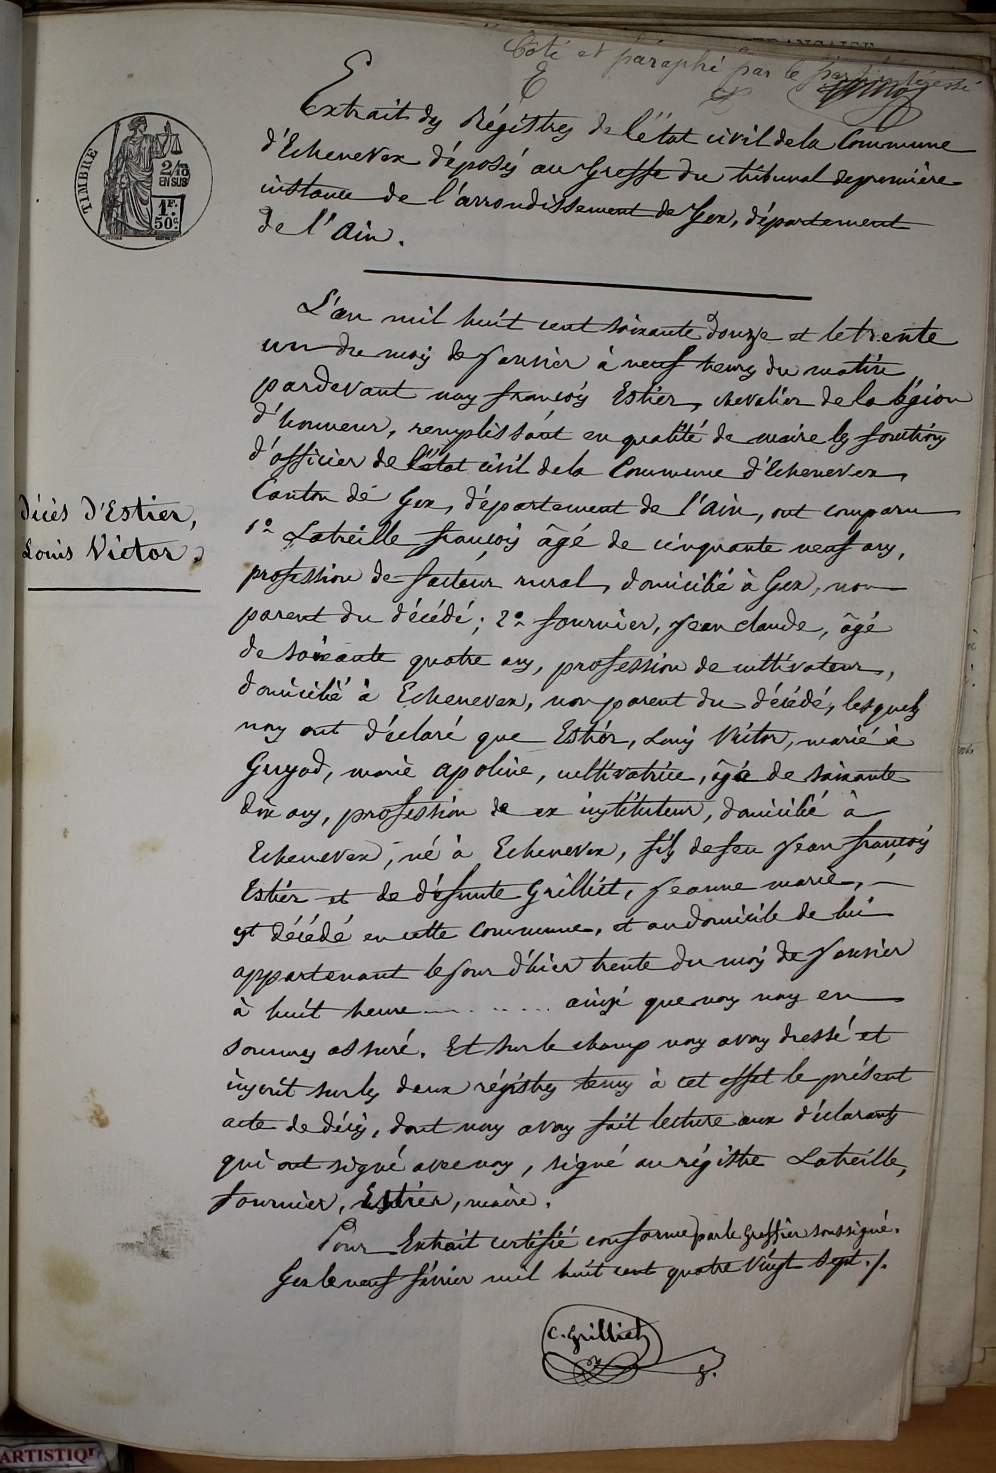 Coté et paraphé par le
FRANÇAISE
Extrait des Régistres de l'état civil de la Commune
d'Echenevex déposés au Greffe du tribunal de première
instance de l'arrondissement de Gex, département
de l'Ain.
TIMBRE
2/10
EN SUS
1F.
50c.
L'an mil huit cent soixante douze et le trente
un du mois de Janvier à neuf heures du matin
pardevant nous françois Estier, chevalier de la légion
d'honneur, remplissant en qualité de maire les fonctions
d'officier de l'état civil de la Commune d'Echenevex,
Canton de Gex, département de l'Ain, ont comparu
1º Latreille françois âgé de cinquante neuf ans,
profession de facteur rural, domicilié à Gex, non
parent du décédé; 2º fournier, Jean claude, âgé
de soixante quatre ans, profession de cultivateur,
domicilié à Echenevex, non parent du décédé, lesquels
nous ont déclaré que Estier, Louis Victor, marié à
Guyod, marie apoline, cultivatrice, âgé de soixante
dix ans, profession de ex instituteur, domicilié à
Echenevex, né à Echenevex, fils de feu Jean françois
Estier et de défunte Grilliet, Jeanne marie,
est décédé en cette Commune, et au domicile de lui
appartenant le jour d'hier trente du mois de Janvier
à huit heure ........ ainsi que nous nous en
sommes assuré. Et sur le champ nous avons dressé et
inscrit sur les deux régistres tenus à cet effet le présent
acte de décès, dont nous avons fait lecture aux déclarants
qui ont signé avec nous, signé au régistre Latreille,
fournier, Estier, maire.
Décès d'Estier,
Louis Victor
Pour Extrait certifié conforme par le Greffier soussigné.
Gex le neuf février mil huit cent quatre vingt sept ./.
C. Grilliet
ARTISTIQU